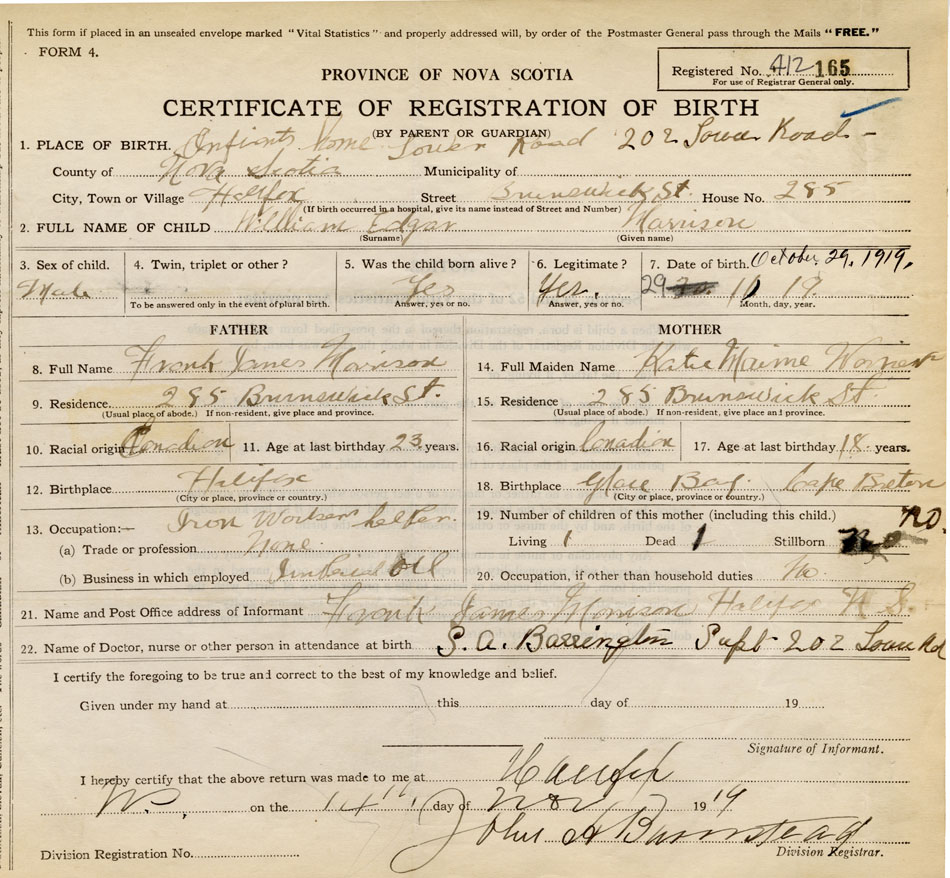 This form if placed in an unsealed envelope marked "Vital Statistics" and properly addressed will, by order of the Postmaster General pass through the Mails "FREE."
FORM 4.
Registered No. 412 165
For use of Registrar General only.
PROVINCE OF NOVA SCOTIA
CERTIFICATE OF REGISTRATION OF BIRTH
(BY PARENT OR GUARDIAN)
1. PLACE OF BIRTH. Infants Home Tower Road 202 Tower Road
County of Nova Scotia Municipality of
City, Town or Village Halifax Street Brunswick St. House No. 285
(If birth occurred in a hospital, give its name instead of Street and Number)
2. FULL NAME OF CHILD William Edgar Morrison
(Surname) (Given name)
3. Sex of child. 4. Twin, triplet or other? 5. Was the child born alive? 6. Legitimate? 7. Date of birth. October 29, 1919.
Male Yes Yes. 29 19
To be answered only in the event of plural birth. Answer, yes or no. Answer, yes or no. Month, day, year.
FATHER MOTHER
8. Full Name Frank James Morrison 14. Full Maiden Name Katie
9. Residence. 285 Brunswick St. 15. Residence 285 Brunswick St.
(Usual place of abode.) If non-resident, give place and province. (Usual place of abode.) If non-resident, give place and province.
10. Racial origin Canadian 11. Age at last birthday 23 years. 16. Racial origin Canadian 17. Age at last birthday 18 years.
12. Birthplace Halifax 18. Birthplace Glace Bay. Cape Breton
(City or place, province or country.) (City or place, province or country.)
13. Occupation:— Iron Worker helper. 19. Number of children of this mother (including this child.) no.
(a) Trade or profession None. Living 1 Dead 1 Stillborn
(b) Business in which employed Imperial Oil 20. Occupation, if other than household duties No.
21. Name and Post Office address of Informant Frank James Morrison Halifax N. S.
22. Name of Doctor, nurse or other person in attendance at birth S. A. Barrington Supt 202 Tower Rd
I certify the foregoing to be true and correct to the best of my knowledge and belief.
Given under my hand at this day of 19
Signature of Informant.
I hereby certify that the above return was made to me at Halifax
on the 14th day of Nov 1919
John A Barnstead
Division Registration No. Division Registrar.